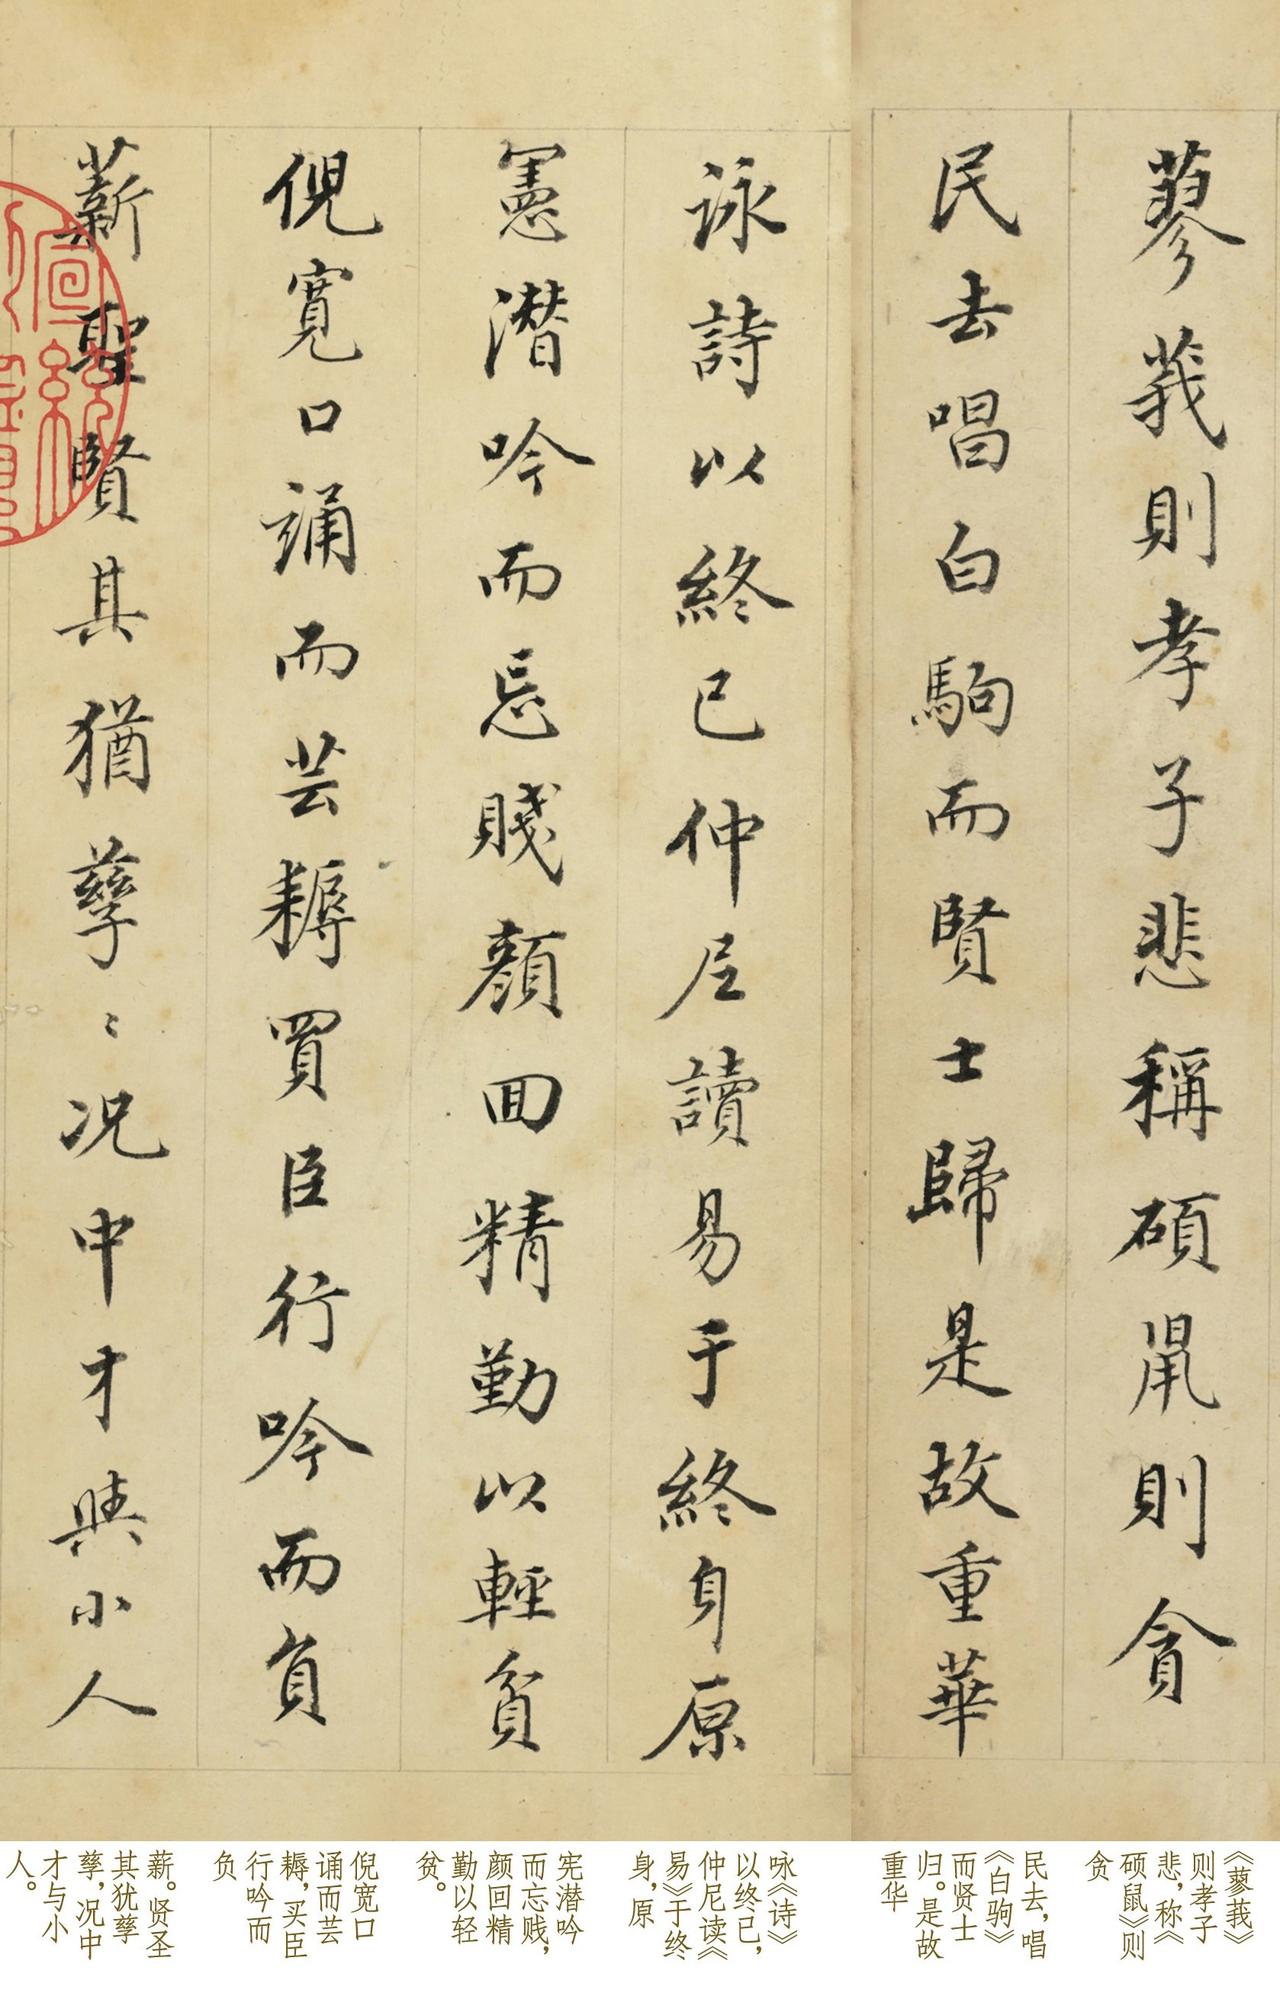 蓼莪則孝子悲稱碩鼠則貪
民去唱白駒而賢士歸是故重華
詠詩以終已仲尼讀易于終身原
憲潜吟而忘賤顔回精勤以輕貧
倪寛口誦而芸耨買臣行吟而負
薪聖賢其猶孳〻况中才與小人
《蓼莪》
则孝子
悲，称《
硕鼠》则
贪
民去，唱
《白驹》
而贤士
归。是故
重华
咏《诗》
以终已，
仲尼读《
易》于终
身，原
宪潜吟
而忘贱，
颜回精
勤以轻
贫。
倪宽口
诵而芸
耨，买臣
行吟而
负
薪。贤圣
其犹孳
孳，况中
才与小
人。